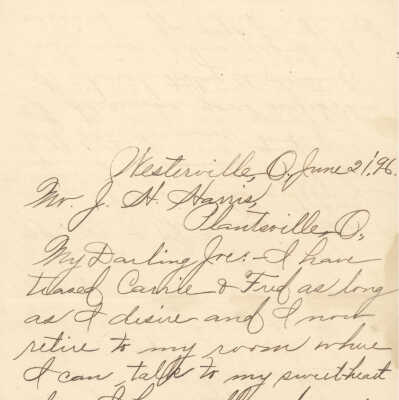 Westerville, O., June 21, '96.
Mr. J. H. Harris,
Plantsville, O,
My Darling Joe:- I have
teased Carrie & Fred as long
as I desire and I now
retire to my room where
I can talk to my sweetheart